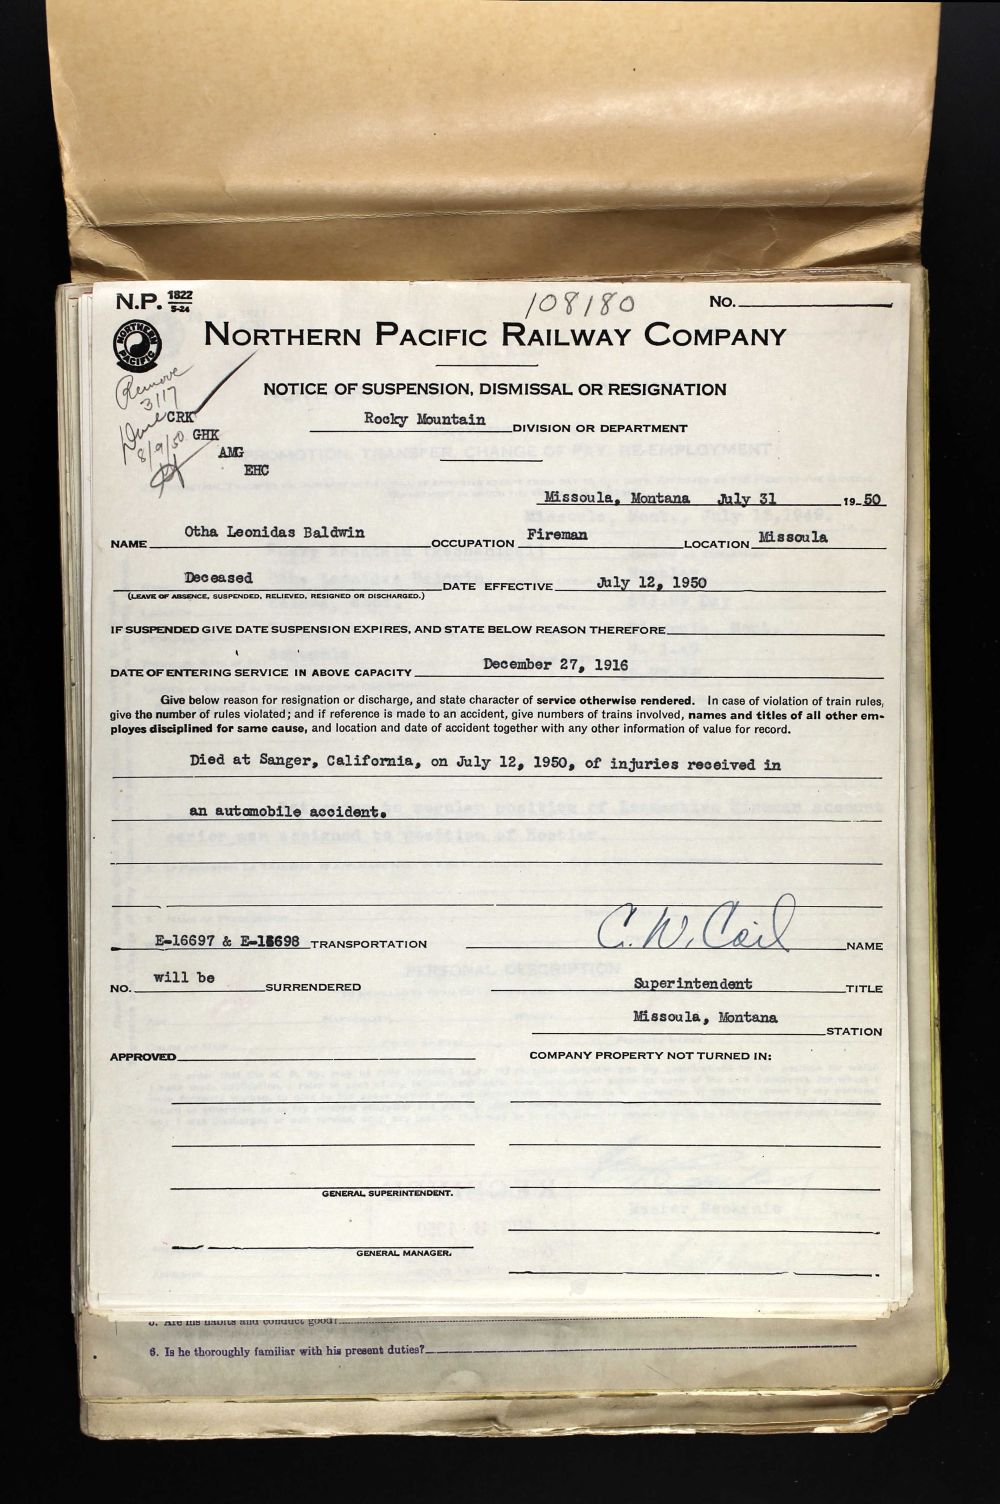 N.P. 1822
5-24
108180
No.
NORTHERN PACIFIC
NORTHERN PACIFIC RAILWAY COMPANY
Remove
3/17
NOTICE OF SUSPENSION, DISMISSAL OR RESIGNATION
CRK
8/9/50
GHK
AMG
EHC
Rocky Mountain DIVISION OR DEPARTMENT
Missoula, Montana July 31 19 50
NAME Otha Leonidas Baldwin OCCUPATION Fireman LOCATION Missoula
Deceased DATE EFFECTIVE July 12, 1950
(LEAVE OF ABSENCE, SUSPENDED, RELIEVED, RESIGNED OR DISCHARGED.)
IF SUSPENDED GIVE DATE SUSPENSION EXPIRES, AND STATE BELOW REASON THEREFORE
DATE OF ENTERING SERVICE IN ABOVE CAPACITY December 27, 1916
Give below reason for resignation or discharge, and state character of service otherwise rendered. In case of violation of train rules,
give the number of rules violated; and if reference is made to an accident, give numbers of trains involved, names and titles of all other em-
ployes disciplined for same cause, and location and date of accident together with any other information of value for record.
Died at Sanger, California, on July 12, 1950, of injuries received in
an automobile accident.
E-16697 & E-16698 TRANSPORTATION
C. W. Coil NAME
NO. will be SURRENDERED
Superintendent TITLE
Missoula, Montana STATION
APPROVED
COMPANY PROPERTY NOT TURNED IN:
GENERAL SUPERINTENDENT.
GENERAL MANAGER.
5. Are his habits and conduct good?
6. Is he thoroughly familiar with his present duties?